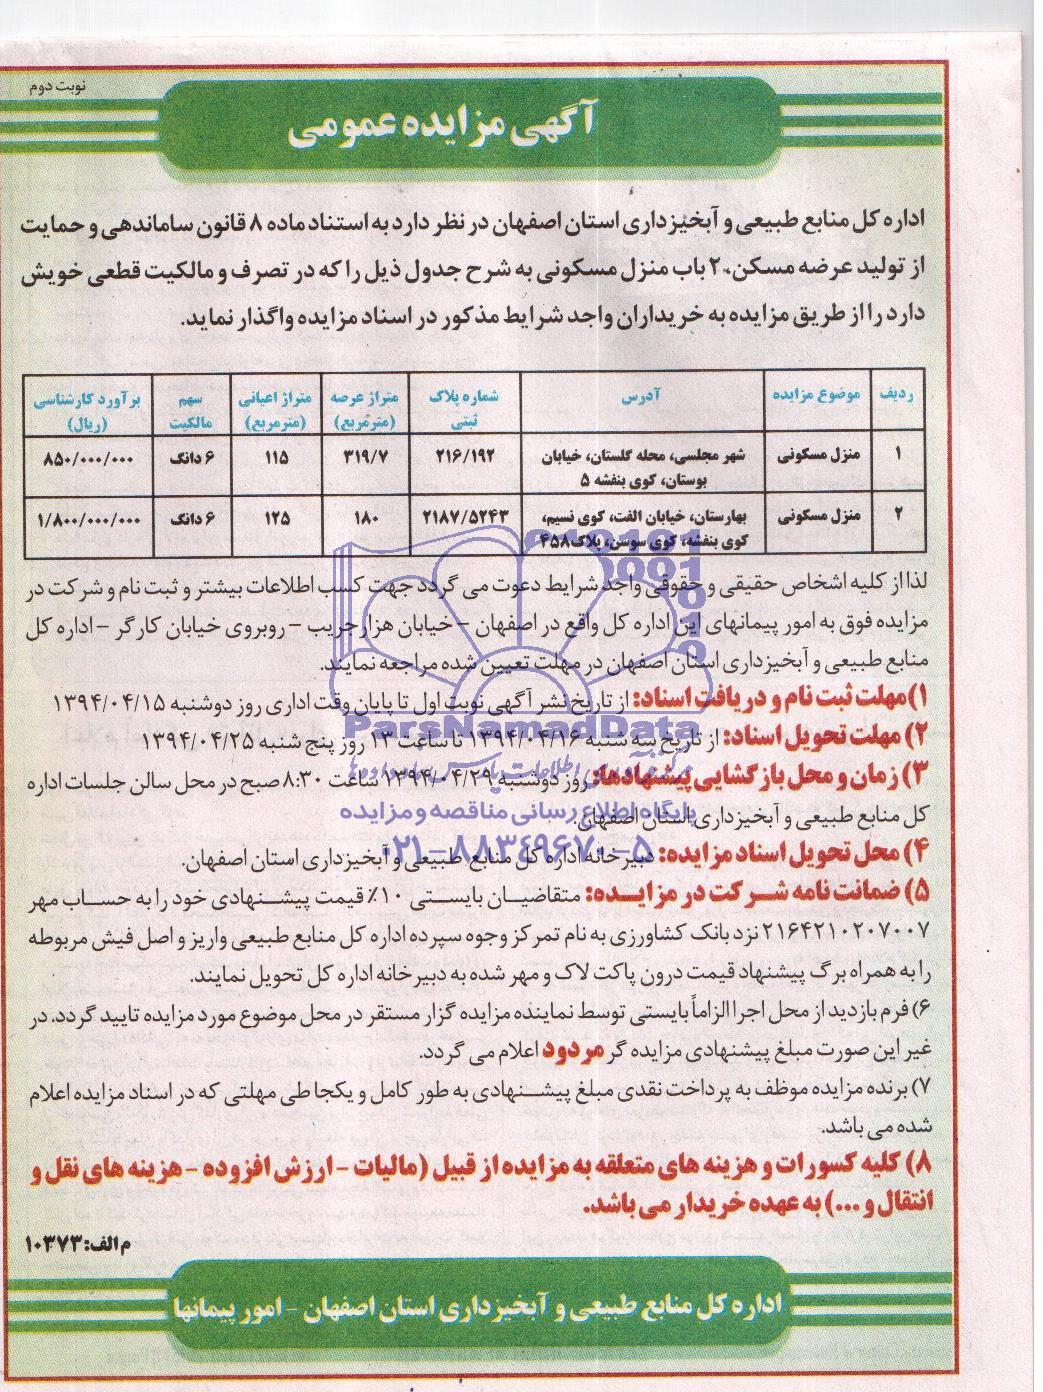 نوبت دوم
آگهی مزایده عمومی
اداره کل منابع طبیعی و آبخیزداری استان اصفهان در نظر دارد به استناد ماده ۸ قانون ساماندهی و حمایت
از تولید عرضه مسکن، ۲ باب منزل مسکونی به شرح جدول ذیل را که در تصرف و مالکیت قطعی خویش
دارد را از طریق مزایده به خریداران واجد شرایط مذکور در اسناد مزایده واگذار نماید.
ردیف موضوع مزایده آدرس شماره پلاک ثبتی متراژ عرصه (مترمربع) متراژ اعیانی (مترمربع) سهم مالکیت برآورد کارشناسی (ریال)
۱ منزل مسکونی شهر مجلسی، محله گلستان، خیابان بوستان، کوی بنفشه ۵ ۲۱۶/۱۹۲ ۳۱۹/۷ ۱۱۵ ۶ دانگ ۸۵۰/۰۰۰/۰۰۰
۲ منزل مسکونی بهارستان، خیابان الفت، کوی نسیم، کوی بنفشه، کوی سوسن، پلاک ۴۵۸ ۲۱۸۷/۵۲۴۳ ۱۸۰ ۱۲۵ ۶ دانگ ۱/۸۰۰/۰۰۰/۰۰۰
لذا از کلیه اشخاص حقیقی و حقوقی واجد شرایط دعوت می گردد جهت کسب اطلاعات بیشتر و ثبت نام و شرکت در
مزایده فوق به امور پیمانهای این اداره کل واقع در اصفهان – خیابان هزارجریب – روبروی خیابان کارگر – اداره کل
منابع طبیعی و آبخیزداری استان اصفهان در مهلت تعیین شده مراجعه نمایند.
۱) مهلت ثبت نام و دریافت اسناد: از تاریخ نشر آگهی نوبت اول تا پایان وقت اداری روز دوشنبه ۱۳۹۴/۰۴/۱۵
ParsNamadData
۲) مهلت تحویل اسناد: از تاریخ سه شنبه ۱۳۹۴/۰۴/۱۶ تا ساعت ۱۳ روز پنج شنبه ۱۳۹۴/۰۴/۲۵
۳) زمان و محل بازگشایی پیشنهادها: روز دوشنبه ۱۳۹۴/۰۴/۲۹ ساعت ۸:۳۰ صبح در محل سالن جلسات اداره
کل منابع طبیعی و آبخیزداری استان اصفهان.
پایگاه اطلاع رسانی مناقصه و مزایده
۰۲۱-۸۸۳۴۹۶۷۰-۵
۴) محل تحویل اسناد مزایده: دبیرخانه اداره کل منابع طبیعی و آبخیزداری استان اصفهان.
۵) ضمانت نامه شرکت در مزایده: متقاضیان بایستی ۱۰٪ قیمت پیشنهادی خود را به حساب مهر
۲۱۶۴۲۱۰۲۰۷۰۰۷ نزد بانک کشاورزی به نام تمرکز وجوه سپرده اداره کل منابع طبیعی واریز و اصل فیش مربوطه
را به همراه برگ پیشنهاد قیمت درون پاکت لاک و مهر شده به دبیرخانه اداره کل تحویل نمایند.
۶) فرم بازدید از محل اجرا الزاماً بایستی توسط نماینده مزایده گزار مستقر در محل موضوع مورد مزایده تایید گردد. در
غیر این صورت مبلغ پیشنهادی مزایده گر مردود اعلام می گردد.
۷) برنده مزایده موظف به پرداخت نقدی مبلغ پیشنهادی به طور کامل و یکجا طی مهلتی که در اسناد مزایده اعلام
شده می باشد.
۸) کلیه کسورات و هزینه های متعلقه به مزایده از قبیل (مالیات – ارزش افزوده – هزینه های نقل و
انتقال و ...) به عهده خریدار می باشد.
م الف: ۱۰۳۷۳
اداره کل منابع طبیعی و آبخیزداری استان اصفهان – امور پیمانها